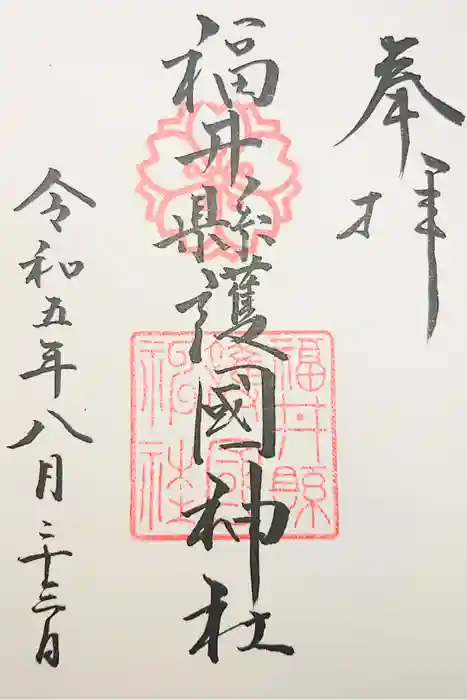 奉拝
福井縣護國神社
福井縣護國神社
令和五年八月二十三日